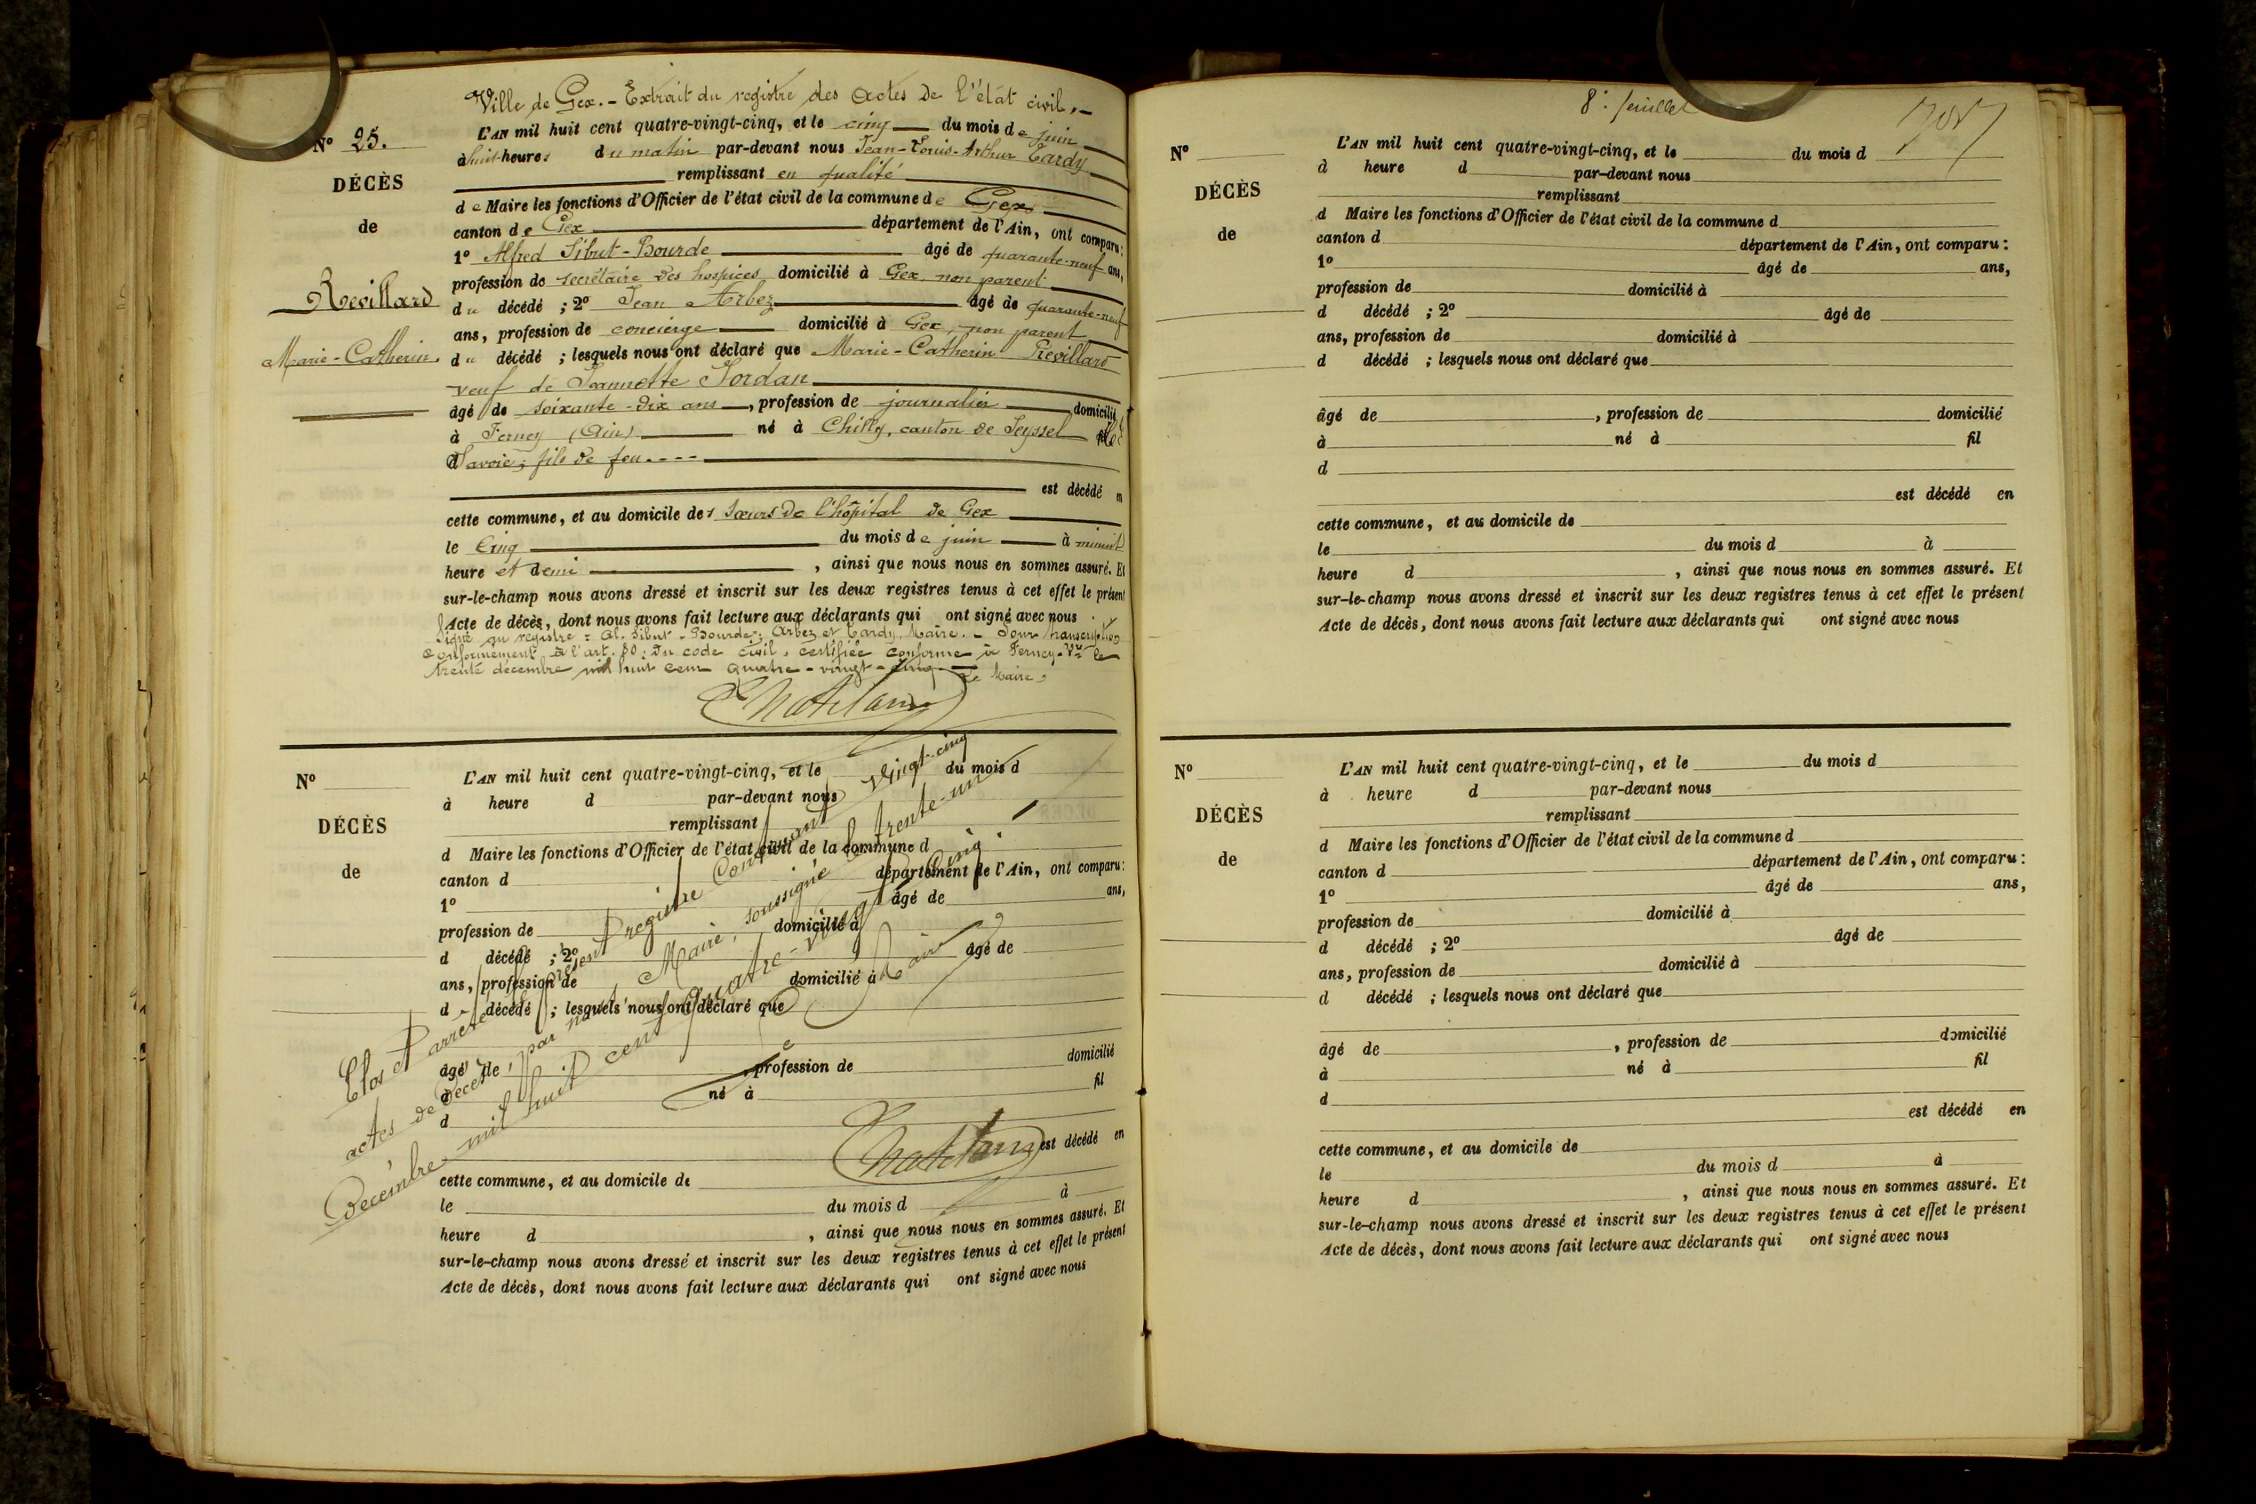 Ville de Gex. - Extrait du registre des actes de l'état civil. -
N° 25.
DÉCÈS
de
Revillard
Marie-Catherin
L'AN mil huit cent quatre-vingt-cinq, et le cinq du mois de juin
à huit heures du matin par-devant nous Jean-Louis-Arthur Tardy
remplissant en qualité
de Maire les fonctions d'Officier de l'état civil de la commune de Gex
canton de Gex département de l'Ain, ont comparu:
1° Alfred Sibut-Bourde âgé de quarante-neuf ans,
profession de secrétaire des hospices domicilié à Gex, non parent
du décédé ; 2° Jean Arbez âgé de quarante-neuf
ans, profession de concierge domicilié à Gex, non parent
du décédé ; lesquels nous ont déclaré que Marie-Catherin Revillard
veuf de Jeannette Jordan
âgé de soixante-dix ans, profession de journalier domicilié
à Ferney (Ain) né à Chilly, canton de Seyssel
Savoie; fils de feu ----
est décédé en
cette commune, et au domicile des sœurs de l'hôpital de Gex
le Cinq du mois de juin à minuit
heure et demi, ainsi que nous nous en sommes assuré. Et
sur-le-champ nous avons dressé et inscrit sur les deux registres tenus à cet effet le présent
Acte de décès, dont nous avons fait lecture aux déclarants qui ont signé avec nous
Signé au registre : Al. Sibut-Bourde; Arbez et Tardy, Maire. - Pour transcription
conformément à l'art. 80 du code civil, certifiée conforme à Ferney-Vre le
trente décembre mil huit cent quatre-vingt-cinq
Le Maire,
Chatelain
N°
DÉCÈS
de
L'AN mil huit cent quatre-vingt-cinq, et le du mois d
à heure d par-devant nous
remplissant
d Maire les fonctions d'Officier de l'état civil de la commune d
canton d département de l'Ain, ont comparu:
1° âgé de ans,
profession de domicilié à
d décédé ; 2° âgé de
ans, profession de domicilié à
d décédé ; lesquels nous ont déclaré que
âgé de, profession de domicilié
à né à fil
d
est décédé en
cette commune, et au domicile de
le du mois d à
heure d, ainsi que nous nous en sommes assuré. Et
sur-le-champ nous avons dressé et inscrit sur les deux registres tenus à cet effet le présent
Acte de décès, dont nous avons fait lecture aux déclarants qui ont signé avec nous
Clos et arrêté le présent registre Contenant vingt-cinq
actes de décès, par nous Maire, soussigné le trente-un
Décembre mil huit cent quatre-vingt Cinq.
Le Maire
Chatelain
8e feuillet
N°
DÉCÈS
de
L'AN mil huit cent quatre-vingt-cinq, et le du mois d
à heure d par-devant nous
remplissant
d Maire les fonctions d'Officier de l'état civil de la commune d
canton d département de l'Ain, ont comparu:
1° âgé de ans,
profession de domicilié à
d décédé ; 2° âgé de
ans, profession de domicilié à
d décédé ; lesquels nous ont déclaré que
âgé de, profession de domicilié
à né à fil
d
est décédé en
cette commune, et au domicile de
le du mois d à
heure d, ainsi que nous nous en sommes assuré. Et
sur-le-champ nous avons dressé et inscrit sur les deux registres tenus à cet effet le présent
Acte de décès, dont nous avons fait lecture aux déclarants qui ont signé avec nous
N°
DÉCÈS
de
L'AN mil huit cent quatre-vingt-cinq, et le du mois d
à heure d par-devant nous
remplissant
d Maire les fonctions d'Officier de l'état civil de la commune d
canton d département de l'Ain, ont comparu:
1° âgé de ans,
profession de domicilié à
d décédé ; 2° âgé de
ans, profession de domicilié à
d décédé ; lesquels nous ont déclaré que
âgé de, profession de domicilié
à né à fil
d
est décédé en
cette commune, et au domicile de
le du mois d à
heure d, ainsi que nous nous en sommes assuré. Et
sur-le-champ nous avons dressé et inscrit sur les deux registres tenus à cet effet le présent
Acte de décès, dont nous avons fait lecture aux déclarants qui ont signé avec nous